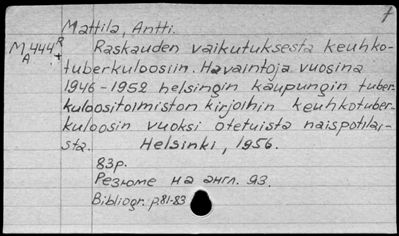 Mattila, Antti.
M 444 R
A +
Raskauden vaikutuksesta keuhko-
tuberkuloosiin. Havaintoja vuosina
1946-1952 helsingin kaupungin tuber-
kuloositoimiston kirjoihin keuhkotuber-
kuloosin vuoksi otetuista naispotilai-
sta. Helsinki, 1956.
83p.
Резюме на англ. яз.
Bibliogr. p.81-83